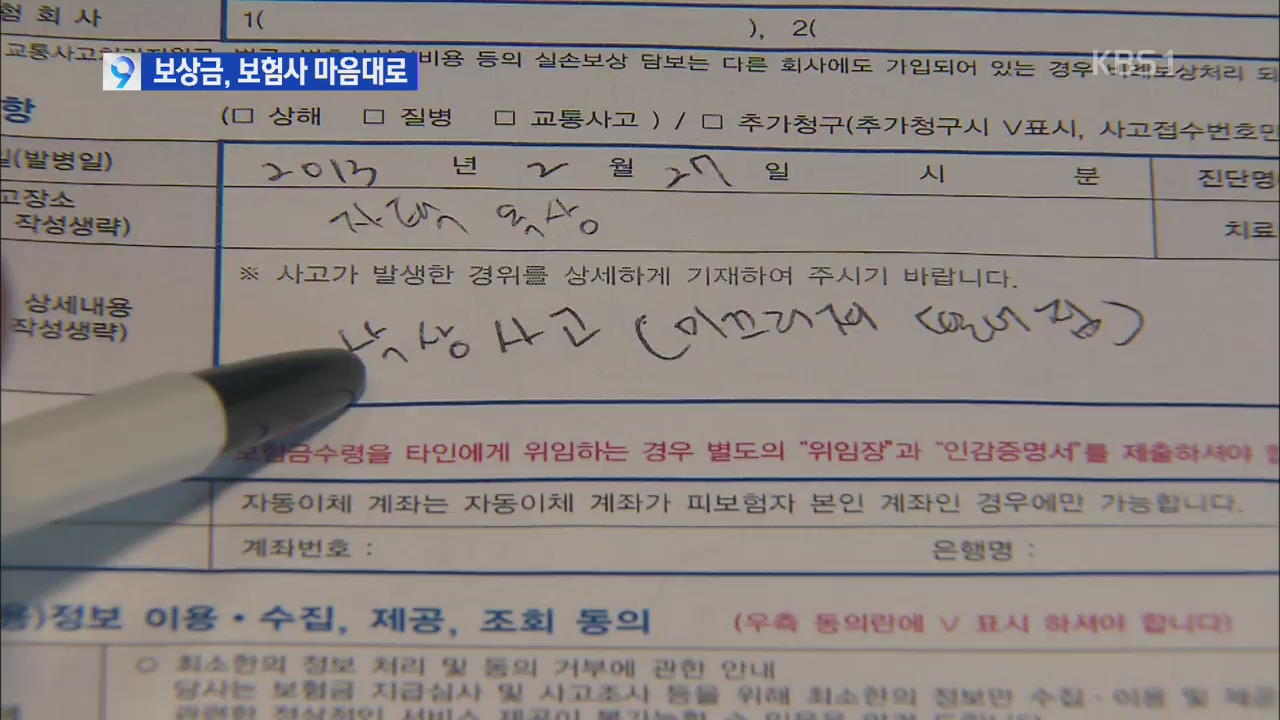 험 회 사 1( ), 2(
9 보상금, 보험사 마음대로
KBS1
비용 등의 실손보상 담보는 다른 회사에도 가입되어 있는 경우 비례보상처리 되
항 (□ 상해 □ 질병 □ 교통사고 ) / □ 추가청구(추가청구시 V표시, 사고접수번호만
일(발병일) 2013 년 2 월 27 일 시 분 진단명
고장소
작성생략) 자택 옥상 치료
※ 사고가 발생한 경위를 상세하게 기재하여 주시기 바랍니다.
상세내용
작성생략) 낙상사고 (미끄러져
보험금수령을 타인에게 위임하는 경우 별도의 "위임장"과 "인감증명서"를 제출하셔야 합
자동이체 계좌는 자동이체 계좌가 피보험자 본인 계좌인 경우에만 가능합니다.
계좌번호 : 은행명 :
용)정보 이용·수집, 제공, 조회 동의 (우측 동의란에 V 표시 하셔야 합니다)
○ 최소한의 정보 처리 및 동의 거부에 관한 안내
당사는 보험금 지급심사 및 사고조사 등을 위해 최소한의 정보만 수집·이용 및 제공
관련한 정상적인 서비스 제공이 불가능할 수 있음을